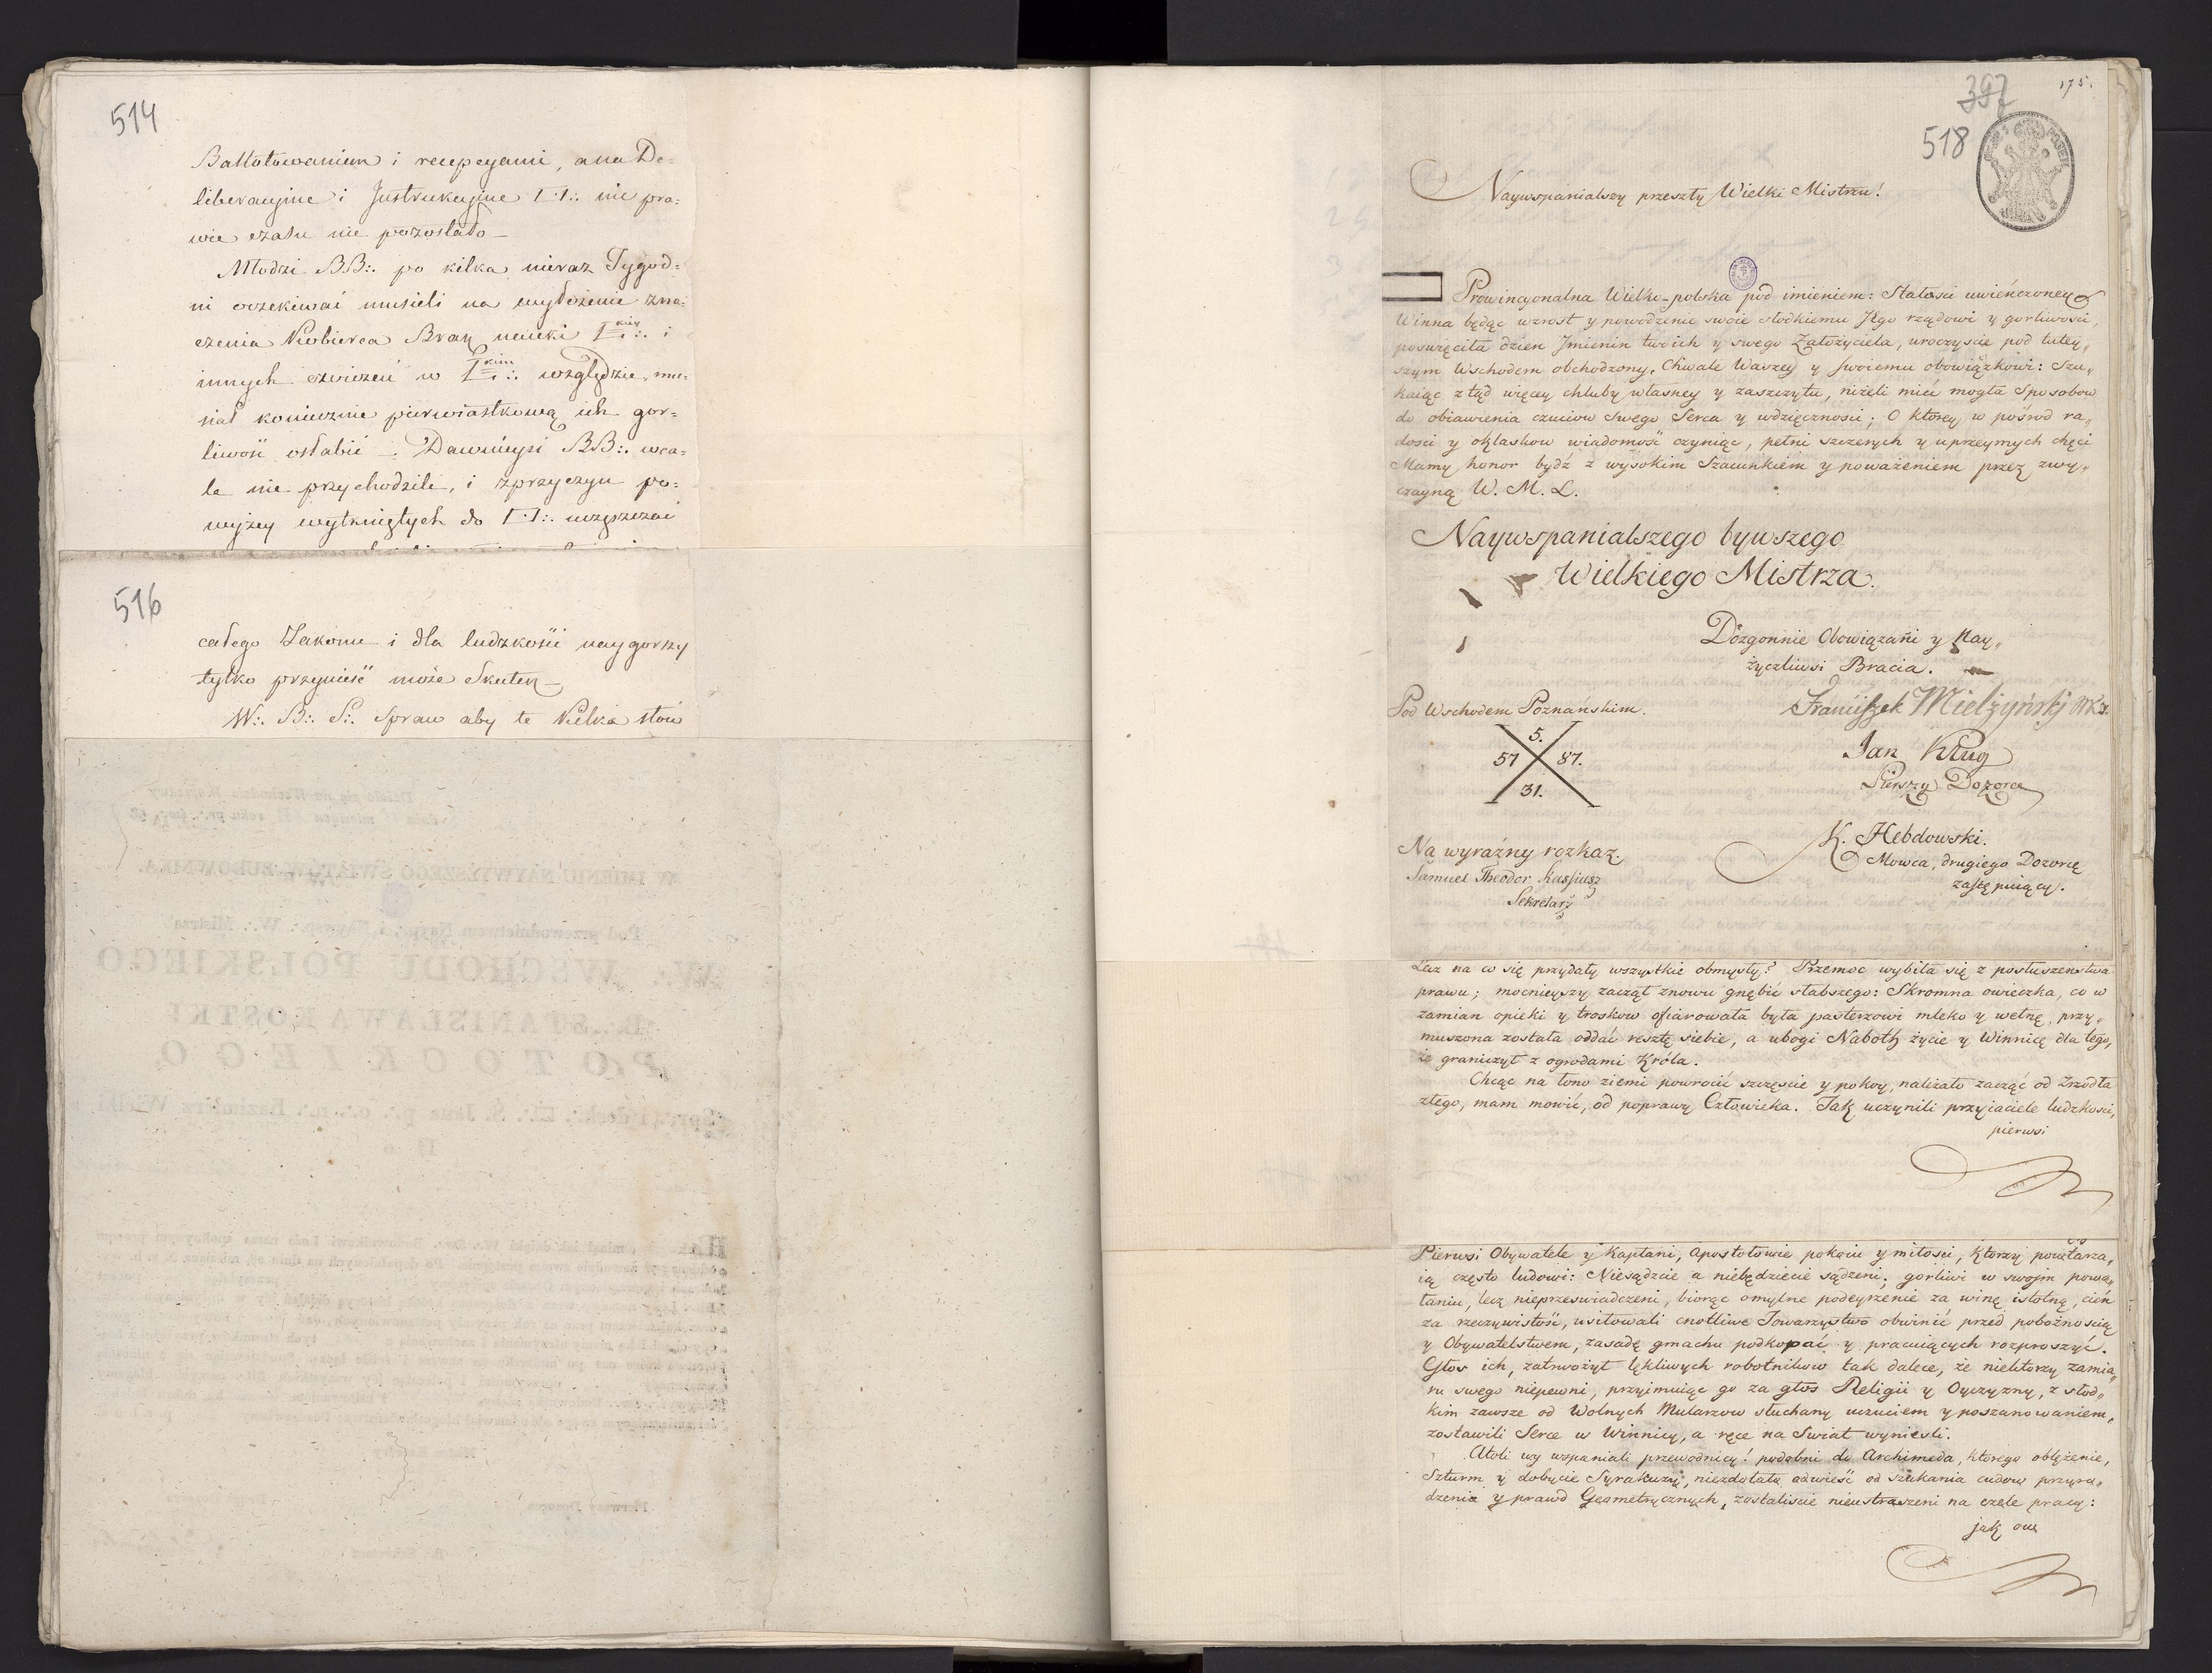 514
Ballotowaniem i recepcyami, a na De=
liberacyine i Instrukcyine nie pra:
wie czasu nie pozostało —
Młodzi BB:. po kilka nieraz Tygod=
ni oczekiwać musieli na wyłożenie zna:
czenia Kobierca Braz nauki i
innych cwiczeń w względzie, mu:
siał koniecznie pierwiastkową ich gor=
liwość osłabić — Dawnieysi BB:. wca=
le nie przychodzili, i z przyczyn po=
wyżey wytkniętych do uczęszczać
516
całego Zakonu i dla ludzkości naygorszy
tylko przynieść może Skutek —
W:. B:. S:. Spraw aby te Kilka słów
397
175.
518
Naywspanialszy przeszły Wielki Mistrzu!
Prowincyonalna Wielko-polska pod imieniem: Stałosci uwieńczoney
Winna będąc wzrost y powodzenie swoie słodkiemu Jego rządowi y gorliwosci,
poswięciła dzien Jmienin twoich y swego Założyciela, uroczyscie pod tutey„
szym Wschodem obchodzony, Chwale Waszey y swoiemu obowiązkowi: Szu„
kaiąc ztąd więcey chluby własney y zaszczytu, niżeli mieć mogła Sposobow
do obiawienia czuciow swego Serca y wdzięcznosci; O ktorey w pośrod ra„
dosci y oklaskow wiadomość czyniąc, pełni szczerych y uprzeymych chęci
Mamy honor bydź z wysokim Szacunkiem y poważeniem przez zwy„
czayną W. M. L.
Naywspanialszego bywszego
Wielkiego Mistrza.
Dozgonnie Obowiązani y Nay„
życzliwsi Bracia.
Pod Wschodem Poznańskim.
Franciszek Mielżyński
5.
57 87.
31.
Jan Klug
Pierszy Dozorca
K. Hebdowski.
Mowca, drugiego Dozorcę
zastępuiący.
Na wyraźny rozkaz.
Samuel Theodor Kassiusz
Sekretarz
Lecz na co się przydały wszystkie obmysły? Przemoc wybiła się z posłuszenstwa
prawu; mocnieyszy zaczął znowu gnębić słabszego: Skromna owieczka, co w
zamian opieki y troskow ofiarowała była pasterzowi mleko y wełnę, przy„
muszona została oddać resztę siebie, a ubogi Naboth życie y Winnicę dla tego,
że graniczył z ogrodami Króla.
Chcąc na łono ziemi powrocić szczęscie y pokoy, należało zacząć od zrzodła
złego, mam mowić, od poprawy Człowieka. Tak uczynili przyiaciele ludzkosci,
pierwsi
Pierwsi Obywatele y Kapłani, Apostołowie pokoiu y miłosci, ktorzy powtarza„
ią często ludowi: Niesądzcie a niebędziecie sądzeni; gorliwi w swojm powo„
łaniu, lecz nieprzeswiadczeni, biorąc omylne podeyrzenie za winę istotną, cień
za rzeczywistość, usiłowali cnotliwe Towarzystwo obwinić przed pobożnoscią
y Obywatelstwem, zasadę gmachu podkopać y pracuiących rozproszyć.
Głos ich, zatrwożył lękliwych robotnikow tak dalece, że niektorzy zamia„
ru swego niepewni, przyimuiąc go za głos Religii y Oyczyzny, z słod„
kim zawsze od Wolnych Mularzow słuchany uczuciem y poszanowaniem,
zostawili Serce w Winnicy, a ręce na Swiat wyniesli.
Atoli wy wspaniali przewodnicy! podobni do Archimeda, ktorego oblężenie,
Szturm y dobycie Syrakuzy, niezdołały odwieść od szukania cudow przyro„
dzenia y prawd Geometrycznych, zostaliscie nieustraszeni na czele pracy:
jak ow